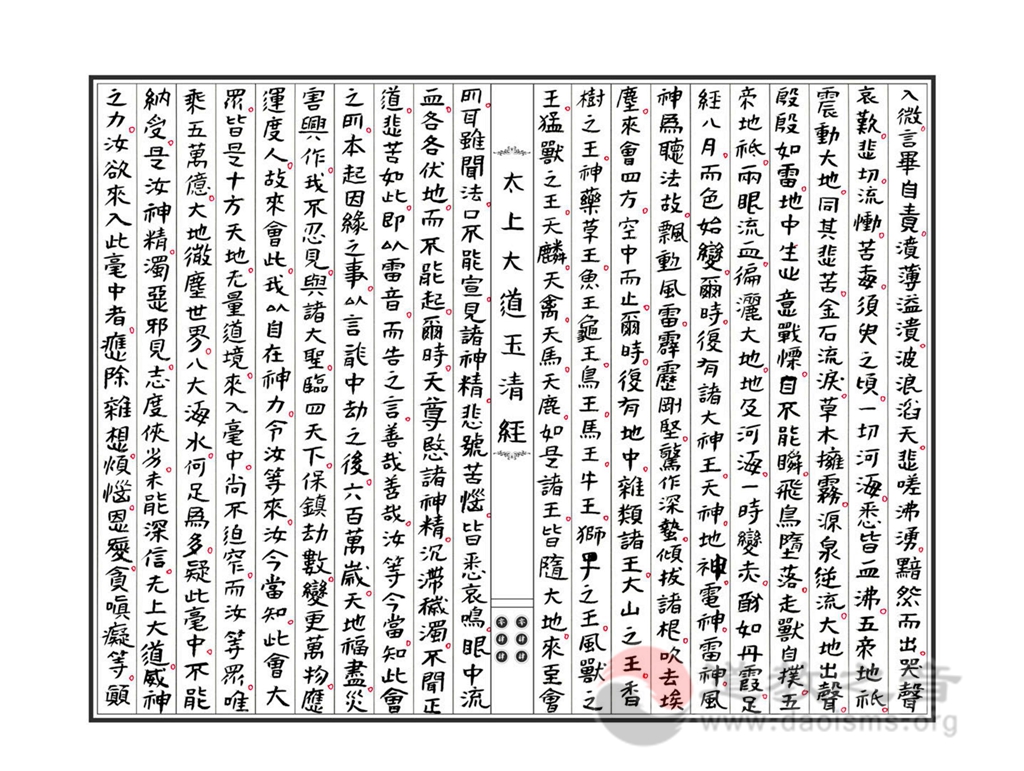 入微言畢自責濆薄溢潰波浪滔天悲嗟沸湧黯然而出哭聲
哀歎悲切流慟苦毒須臾之頃一切河海悉皆血沸五帝地祇
震動大地同其悲苦金石流淚草木擁霧源泉逆流大地出聲
殷殷如雷地中生出意戰慄自不能瞬飛鳥墮落走獸自撲五
帝地祇兩眼流血徧灑大地地及河海一時變赤酎如丹霞足
經八月而色始變爾時復有諸大神王天神地神電神雷神風
神為聽法故飄動風雷霹靂剛堅驚作深蟄傾拔諸根吹去埃
塵來會四方空中而止爾時復有地中雜類諸王大山之王香
樹之王神藥草王魚王龜王鳥王馬王牛王獅子之王風獸之
王猛獸之王天麟天禽天馬天鹿如是諸王皆隨大地來至會
太上大道玉清經
零肆肆
零肆肆
所耳雖聞法口不能宣見諸神精悲號苦惱皆悉哀鳴眼中流
血各各伏地而不能起爾時天尊愍諸神精沉滯穢濁不聞正
道悲苦如此即以雷音而告之言善哉善哉汝等今當知此會
之所本起因緣之事以言說中劫之後六百萬歲天地福盡災
害興作我不忍見與諸大聖臨四天下保鎮劫數變更萬物應
運度人故來會此我以自在神力令汝等來汝今當知此會大
眾皆是十方天地无量道境來入毫中尚不迫窄而汝等眾唯
乘五萬億大地微塵世界八大海水何足為多疑此毫中不能
納受是汝神精濁惡邪見志度俠劣未能深信无上大道威神
之力汝欲來入此毫中者應除雜想煩惱恩愛貪嗔癡等願
道教之音
www.daoisms.org